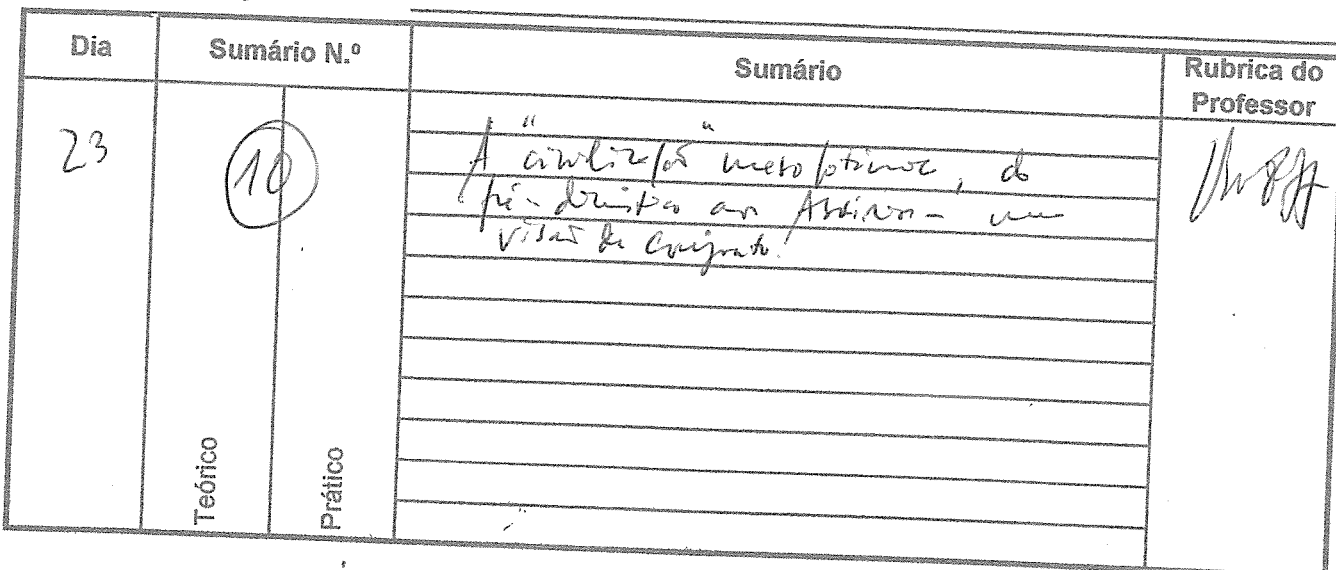 Dia Sumário N.º Sumário Rubrica do Professor
23 10 A "civilização" mesopotâmica, do
pré-dinástico aos Assírios - uma
visão de conjunto.
Teórico Prático